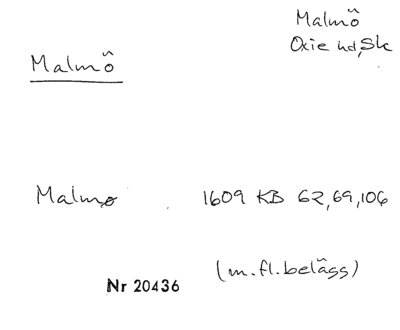 Malmö
Oxie hd, Sk
Malmö
Malmo 1609 KB 62,69,106
(m.fl.belägg)
Nr 20436